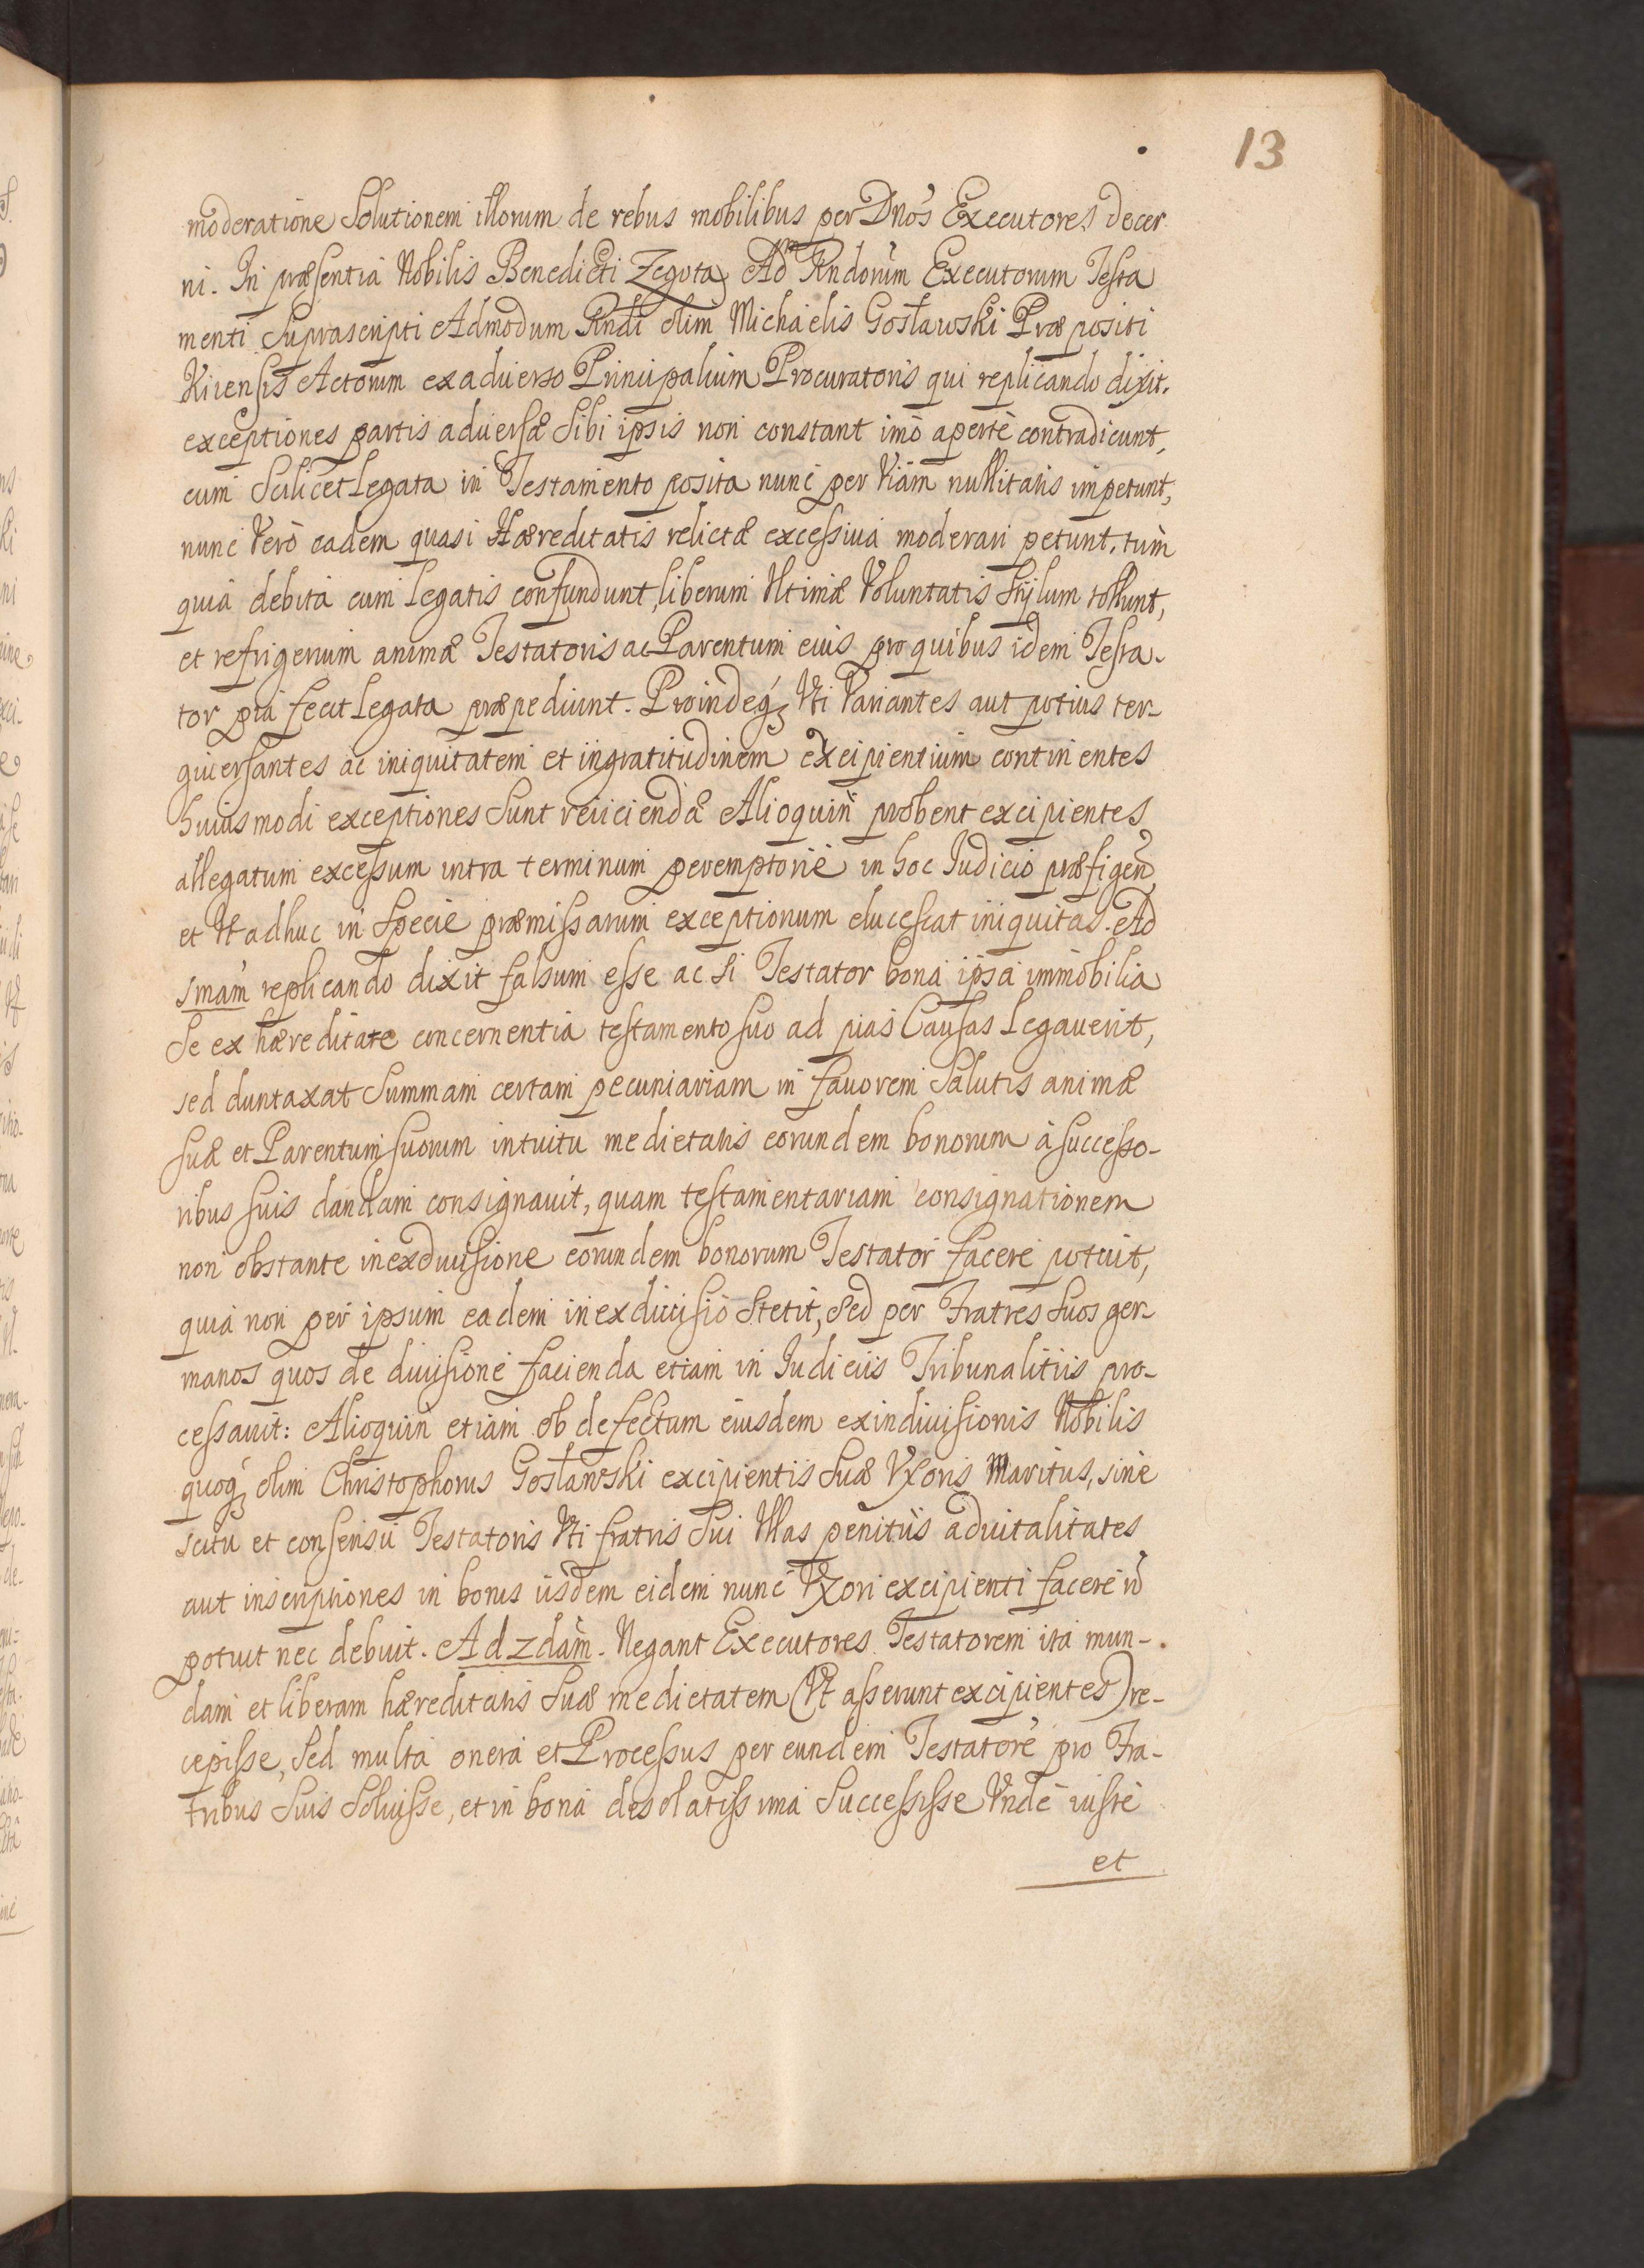 13
moderatione Solutionem illorum de rebus mobilibus per Dnos Executores decer
ni. In præsentia Nobilis Benedicti Zegota Adm Rndorum Executorum Testa
menti Suprascripti Admodum Rndi olim Michaelis Gosławski Præpositi
Kiiensis Actorum ex aduerso Principalium Procuratoris qui replicando dixit.
exceptiones partis aduersæ Sibi ipsis non constant imò apertè contradicunt,
cum Scilicet Legata in Testamento posita nunc per Viam nullitatis impetunt,
nunc Verò eadem quasi Hæreditatis relictæ excessiua moderari petunt. tùm
quia debita cum Legatis confundunt, liberum Vltimæ Voluntatis Stylum tollunt,
et refrigerium animæ Testatoris ac Parentum eius pro quibus idem Testa-
tor pia fecit Legata præpediunt. Proindeq3 Vti Variantes aut potius ter-
giuersantes ac iniquitatem et ingratitudinem excipientium continentes
huiusmodi exceptiones Sunt reiiciendæ Alioquin probent excipientes
allegatum excessum intra terminum peremptorie in hoc Iudicio præfigen
et Vt adhuc in Specie præmissarum exceptionum elucescat iniquitas. Ad
1mam replicando dixit falsum esse ac Si Testator bona ipsa immobilia
Se ex hæreditate concernentia testamento suo ad pias Causas Legauerit,
sed duntaxat Summam certam pecuniariam in fauorem Salutis animæ
suæ et Parentum suorum intuitu medietatis eorundem bonorum à successo-
ribus suis dandam consignauit, quam testamentariam consignationem
non obstante inexdiuisione eorundem bonorum Testator facere potuit,
quia non per ipsum eadem inexdiuisio Stetit, Sed per Fratres Suos ger-
manos quos de diuisione facienda etiam in Iudiciis Tribunalitiis pro-
cessauit: Alioquin etiam ob defectum eiusdem exindiuisionis Nobilis
quoq3 olim Christophorus Gosławski excipientis Suæ Vxoris Maritus, sine
scitu et consensu Testatoris Vti fratris Sui Vllas penitus aduitalitates
aut inscriptiones in bonis iisdem eidem nunc Vxori excipienti facere n
potuit nec debuit. Ad 2dam. Negant Executores Testatorem ita mun-
dam et liberam hæreditatis Suæ medietatem (Vt asserunt excipientes) re-
cepisse, Sed multa onera et Processus per eundem Testatorē pro Fra-
tribus Suis Soluisse, et in bona desolatissima Successisse Vnde iuste
et